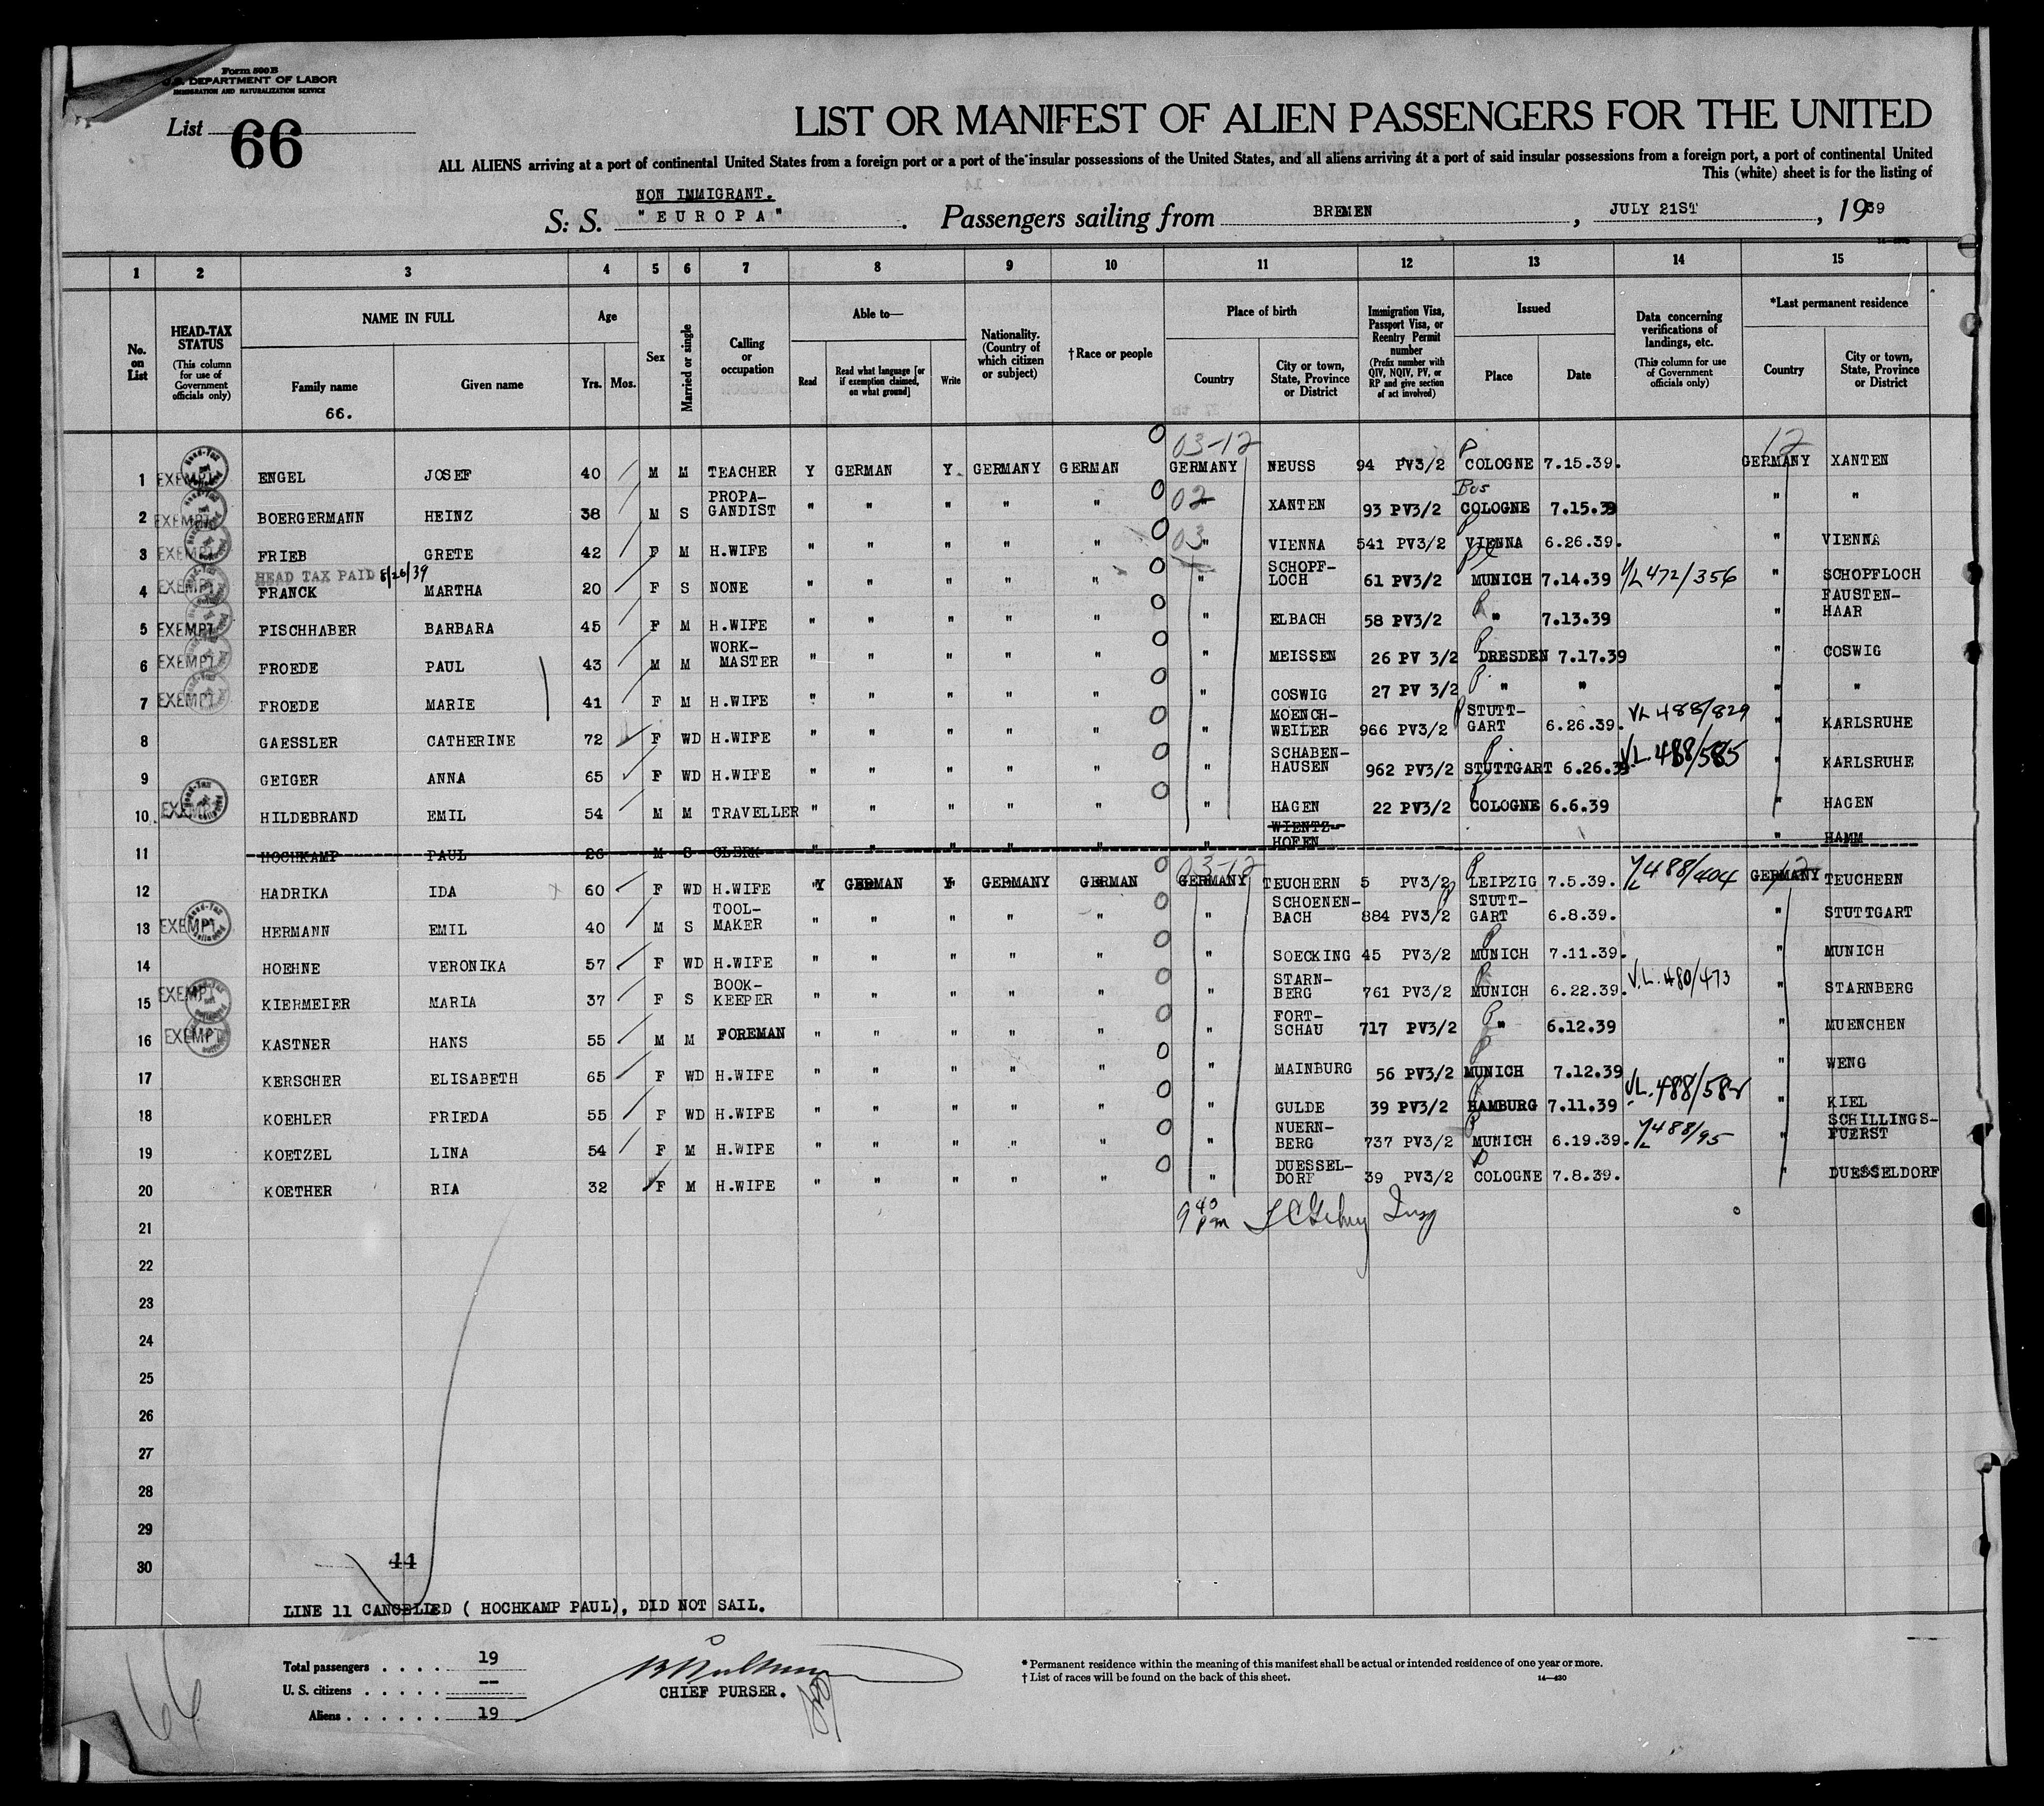 Form 500 B
U.S. DEPARTMENT OF LABOR
IMMIGRATION AND NATURALIZATION SERVICE
List 66
LIST OR MANIFEST OF ALIEN PASSENGERS FOR THE UNITED
ALL ALIENS arriving at a port of continental United States from a foreign port or a port of the insular possessions of the United States, and all aliens arriving at a port of said insular possessions from a foreign port, a port of continental United
This (white) sheet is for the listing of
NON IMMIGRANT.
S. S. "EUROPA" . Passengers sailing from BREMEN , JULY 21ST , 1939
1 2 3 4 5 6 7 8 9 10 11 12 13 14 15
No. on List
HEAD-TAX STATUS (This column for use of Government officials only)
NAME IN FULL
Family name
Given name
66.
Age
Yrs. Mos.
Sex
Married or single
Calling or occupation
Able to—
Read
Read what language [or if exemption claimed, on what ground]
Write
Nationality. (Country of which citizen or subject)
†Race or people
Place of birth
Country
City or town, State, Province or District
Immigration Visa, Passport Visa, or Reentry Permit number (Prefix number with QIV, NQIV, PV, or RP and give section of act involved)
Issued
Place
Date
Data concerning verifications of landings, etc. (This column for use of Government officials only)
*Last permanent residence
Country
City or town, State, Province or District
03-12 12
1 EXEMPT ENGEL JOSEF 40 M M TEACHER Y GERMAN Y. GERMANY GERMAN GERMANY NEUSS 94 PV3/2 P COLOGNE 7.15.39. GERMANY XANTEN
2 EXEMPT BOERGERMANN HEINZ 38 M S PROPA-GANDIST " " " " " 02 " XANTEN 93 PV3/2 Bus COLOGNE 7.15.39 " "
3 EXEMPT FRIEB GRETE 42 F M H.WIFE " " " " " 03 " VIENNA 541 PV3/2 P VIENNA 6.26.39. " VIENNA
HEAD TAX PAID 8/26/39
4 EXEMPT FRANCK MARTHA 20 F S NONE " " " " " " SCHOPF-LOCH 61 PV3/2 MUNICH 7.14.39 V/L 472/356 " SCHOPFLOCH
5 EXEMPT FISCHHABER BARBARA 45 F M H.WIFE " " " " " " ELBACH 58 PV3/2 P " 7.13.39 " FAUSTEN-HAAR
6 EXEMPT FROEDE PAUL 43 M M WORK-MASTER " " " " " " MEISSEN 26 PV 3/2 P DRESDEN 7.17.39 " COSWIG
7 EXEMPT FROEDE MARIE 41 F M H.WIFE " " " " " " COSWIG 27 PV 3/2 P " " " "
8 GAESSLER CATHERINE 72 F WD H.WIFE " " " " " " MOENCH-WEILER 966 PV3/2 P STUTT-GART 6.26.39. VL 488/829 " KARLSRUHE
9 GEIGER ANNA 65 F WD H.WIFE " " " " " " SCHABEN-HAUSEN 962 PV3/2 P STUTTGART 6.26.39 V.L. 488/585 " KARLSRUHE
10 EXEMPT HILDEBRAND EMIL 54 M M TRAVELLER " " " " " " HAGEN 22 PV3/2 P COLOGNE 6.6.39 " HAGEN
11 HOCHKAMP PAUL 26 M S CLERK " " " " " " WIENTZ-HOFEN " HAMM
03-12 12
12 HADRIKA IDA 60 F WD H.WIFE Y GERMAN Y GERMANY GERMAN GERMANY TEUCHERN 5 PV3/2 P LEIPZIG 7.5.39. V/L 488/404 GERMANY TEUCHERN
13 EXEMPT HERMANN EMIL 40 M S TOOL-MAKER " " " " " " SCHOENEN-BACH 884 PV3/2 P STUTT-GART 6.8.39. " STUTTGART
14 HOEHNE VERONIKA 57 F WD H.WIFE " " " " " " SOECKING 45 PV3/2 P MUNICH 7.11.39. " MUNICH
15 EXEMPT KIERMEIER MARIA 37 F S BOOK-KEEPER " " " " " " STARN-BERG 761 PV3/2 P MUNICH 6.22.39. V.L. 480/473 " STARNBERG
16 EXEMPT KASTNER HANS 55 M M FOREMAN " " " " " " FORT-SCHAU 717 PV3/2 P " 6.12.39 " MUENCHEN
17 KERSCHER ELISABETH 65 F WD H.WIFE " " " " " " MAINBURG 56 PV3/2 P MUNICH 7.12.39 " WENG
18 KOEHLER FRIEDA 55 F WD H.WIFE " " " " " " GULDE 39 PV3/2 P HAMBURG 7.11.39 VL. 488/582 " KIEL
19 KOETZEL LINA 54 F M H.WIFE " " " " " " NUERN-BERG 737 PV3/2 P MUNICH 6.19.39. V/L 488/95 " SCHILLINGS-FUERST
20 KOETHER RIA 32 F M H.WIFE " " " " " " DUESSEL-DORF 39 PV3/2 P COLOGNE 7.8.39. " DUESSELDORF
21 9 40 pm Insp
22
23
24
25
26
27
28
29
30
44
LINE 11 CANCELLED ( HOCHKAMP PAUL), DID NOT SAIL.
66
Total passengers . . . . 19
U. S. citizens . . . . . --
Aliens . . . . . . 19
CHIEF PURSER.
* Permanent residence within the meaning of this manifest shall be actual or intended residence of one year or more.
† List of races will be found on the back of this sheet. 14—430